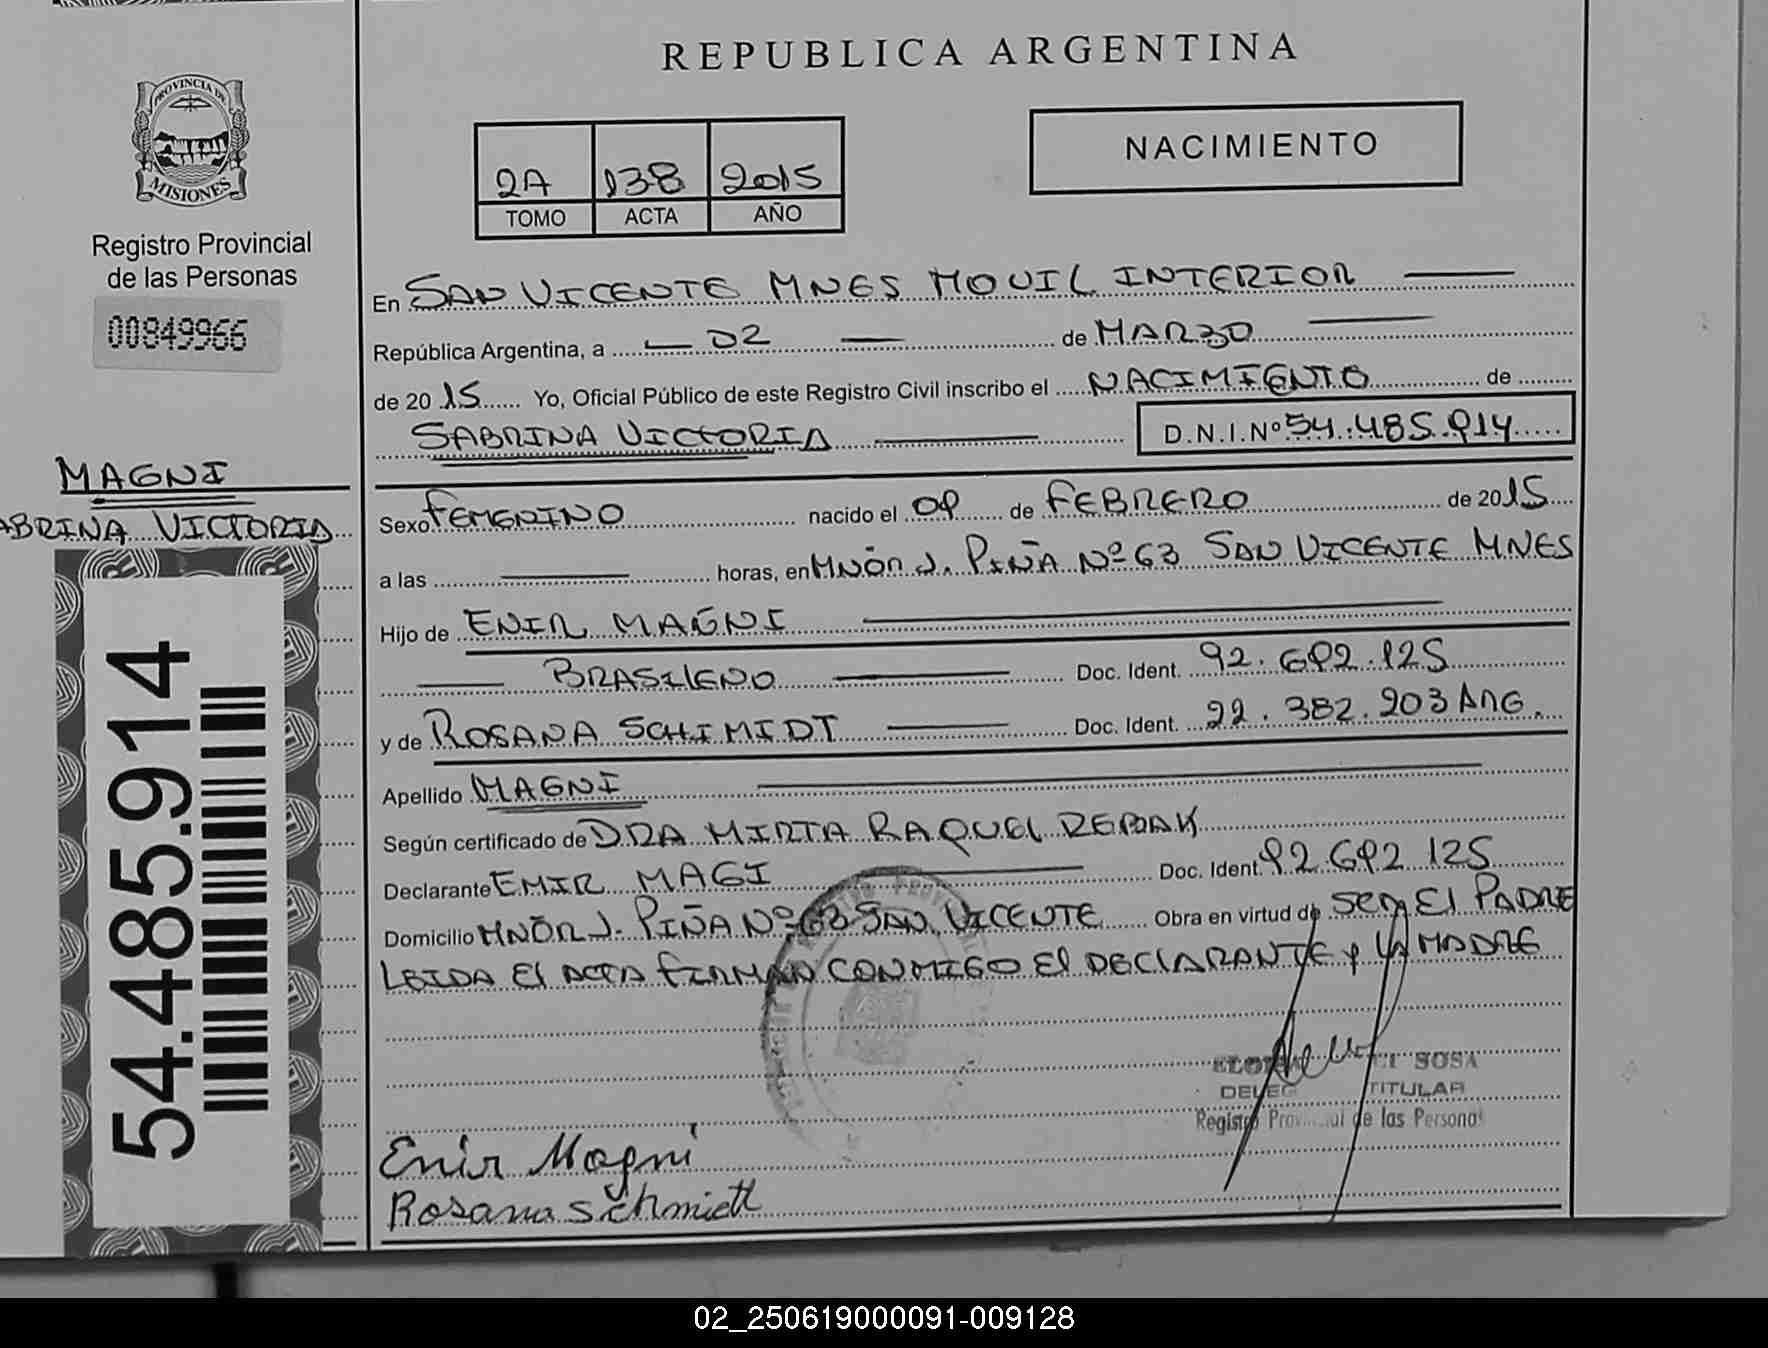 REPUBLICA ARGENTINA
PROVINCIA DE
MISIONES
Registro Provincial
de las Personas
00849966
2A 138 2015
TOMO ACTA AÑO
NACIMIENTO
En SAN VICENTE MNES MOVIL INTERIOR
República Argentina, a 02 de MARZO
de 2015 Yo, Oficial Público de este Registro Civil inscribo el NACIMIENTO de
SABRINA VICTORIA D.N.I.Nº 54.485.914
MAGNI
ABRINA VICTORIA
54.485.914
Sexo FEMENINO nacido el 09 de FEBRERO de 2015
a las horas, en MÑON J. PIÑA Nº 63 SAN VICENTE MNES
Hijo de ENIR MAGNI
BRASILENO Doc. Ident. 92.692.125
y de ROSANA SCHIMIDT Doc. Ident. 22.382.203 ARG.
Apellido MAGNI
Según certificado de DRA MIRTA RAQUEL
Declarante EMIR MAGI Doc. Ident. 92.692.125
Domicilio MÑON J. PIÑA Nº 63 SAN VICENTE Obra en virtud de SER El PADRE
LEIDA El ACTA FIRMAN CONMIGO El DEClARANTE y LA MADRE
SOSA
TITULAR
Registro Provincial de las Personas
Enir Magni
Rosana Schmidt
02_250619000091-009128